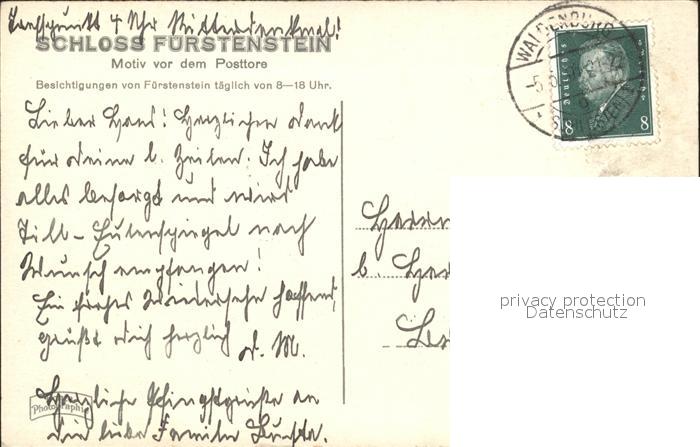 Treffpunkt 4 Uhr Mittendenkmal!
SCHLOSS FÜRSTENSTEIN
Motiv vor dem Posttore
Besichtigungen von Fürstenstein täglich von 8—18 Uhr.
Lieber Hans! Herzlichen Dank
für deine l. Zeilen. Ich habe
alles besorgt und wirst
Till-Eulenspiegel nach
Wunsch empfangen!
Ein frohes Wiedersehn hoffend,
grüßt dich herzlich d. M.
Herzliche Pfingstgrüße an
die liebe Familie
Photographie
WALDENBURG
Deutsches Reich
8 8
Herrn
b. Her
privacy protection
Datenschutz